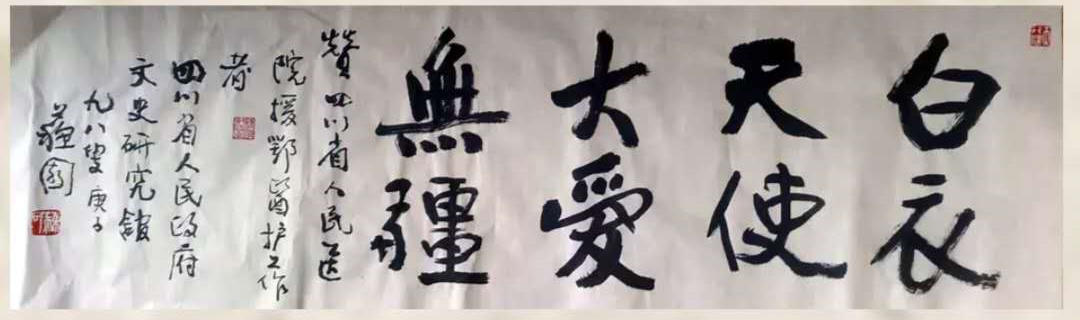 白衣
天使
大愛
無疆
贊四川省人民医
院援鄂醫护工作
者
四川省人民政府
文史研究館
九八叟庚子